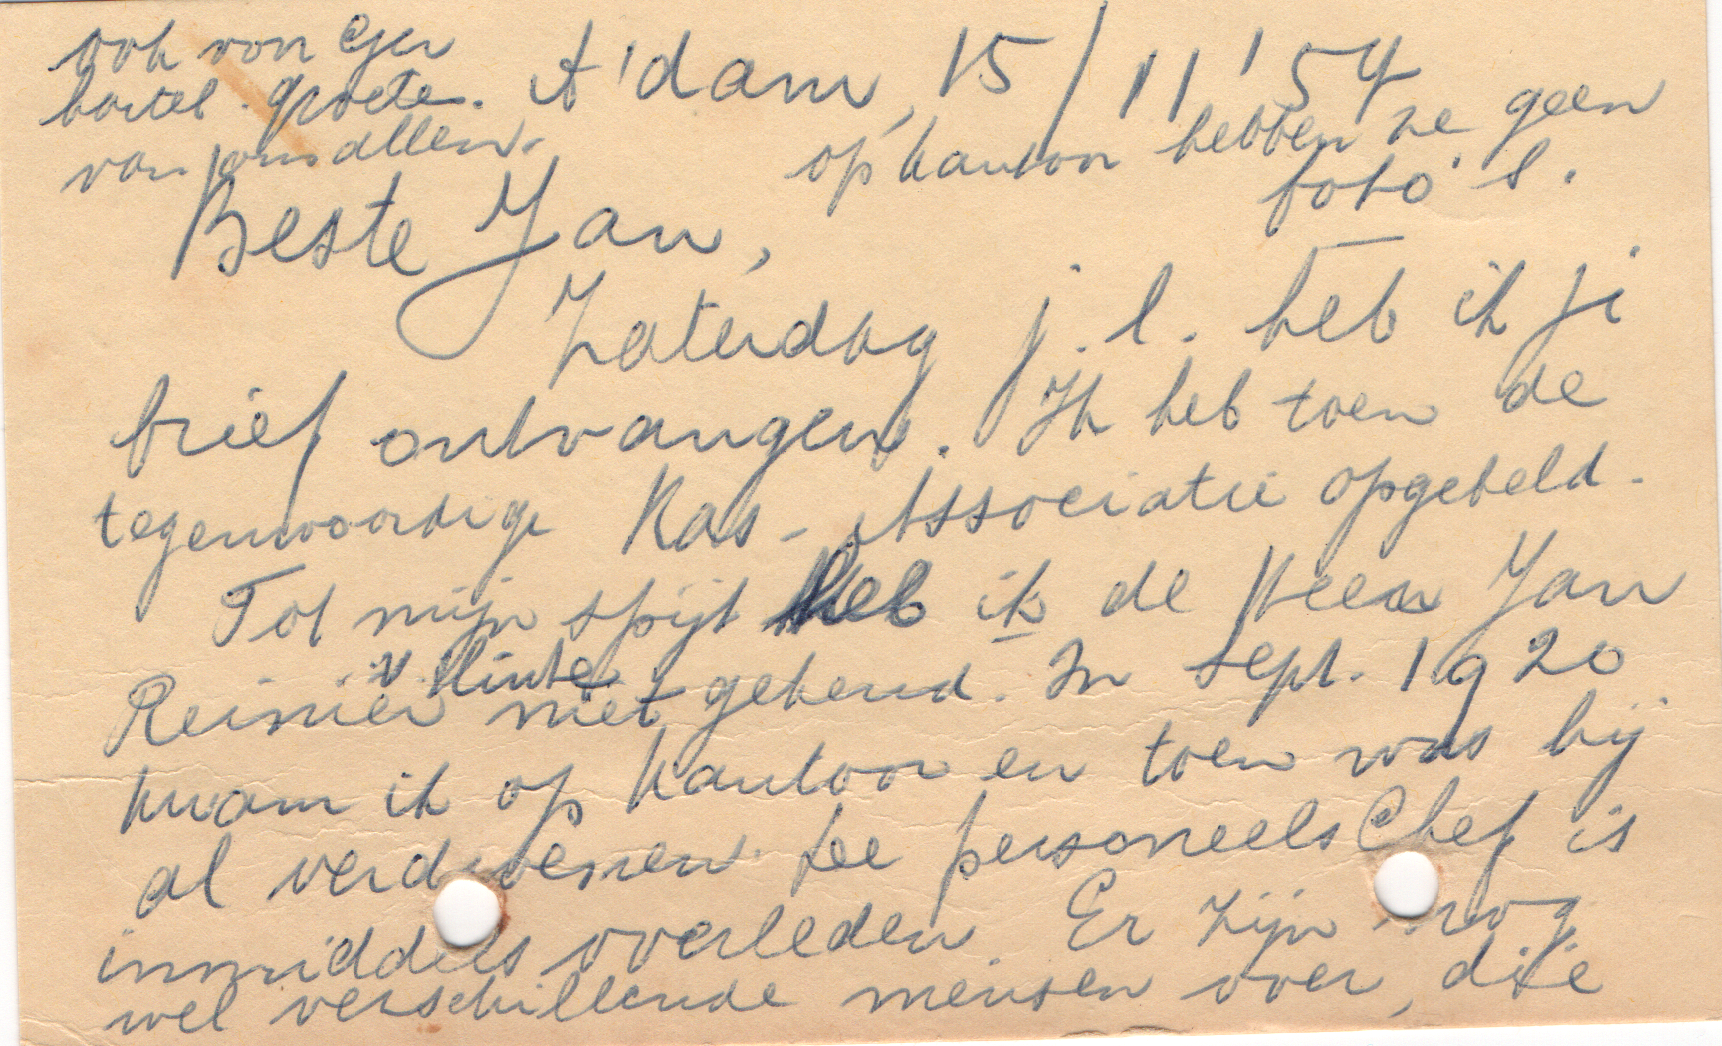 ook von Ger
hartel. groete.
van jouw allen.
A'dam, 15/11 '54
op kantoor hebben ze geen
foto's.
Beste Jan,
Zaterdag j.l. heb ik je
brief ontvangen. Ik heb toen de
tegenwoordige Kas-Associatie opgebeld.
Tot mijn spijt heb ik de Heer Jan
Reinier v. Hinte niet gekend. In Sept. 1920
kwam ik op kantoor en toen was hij
al verdwenen. De personeelschef is
inmiddels overleden. Er zijn nog
wel verschillende mensen over, die